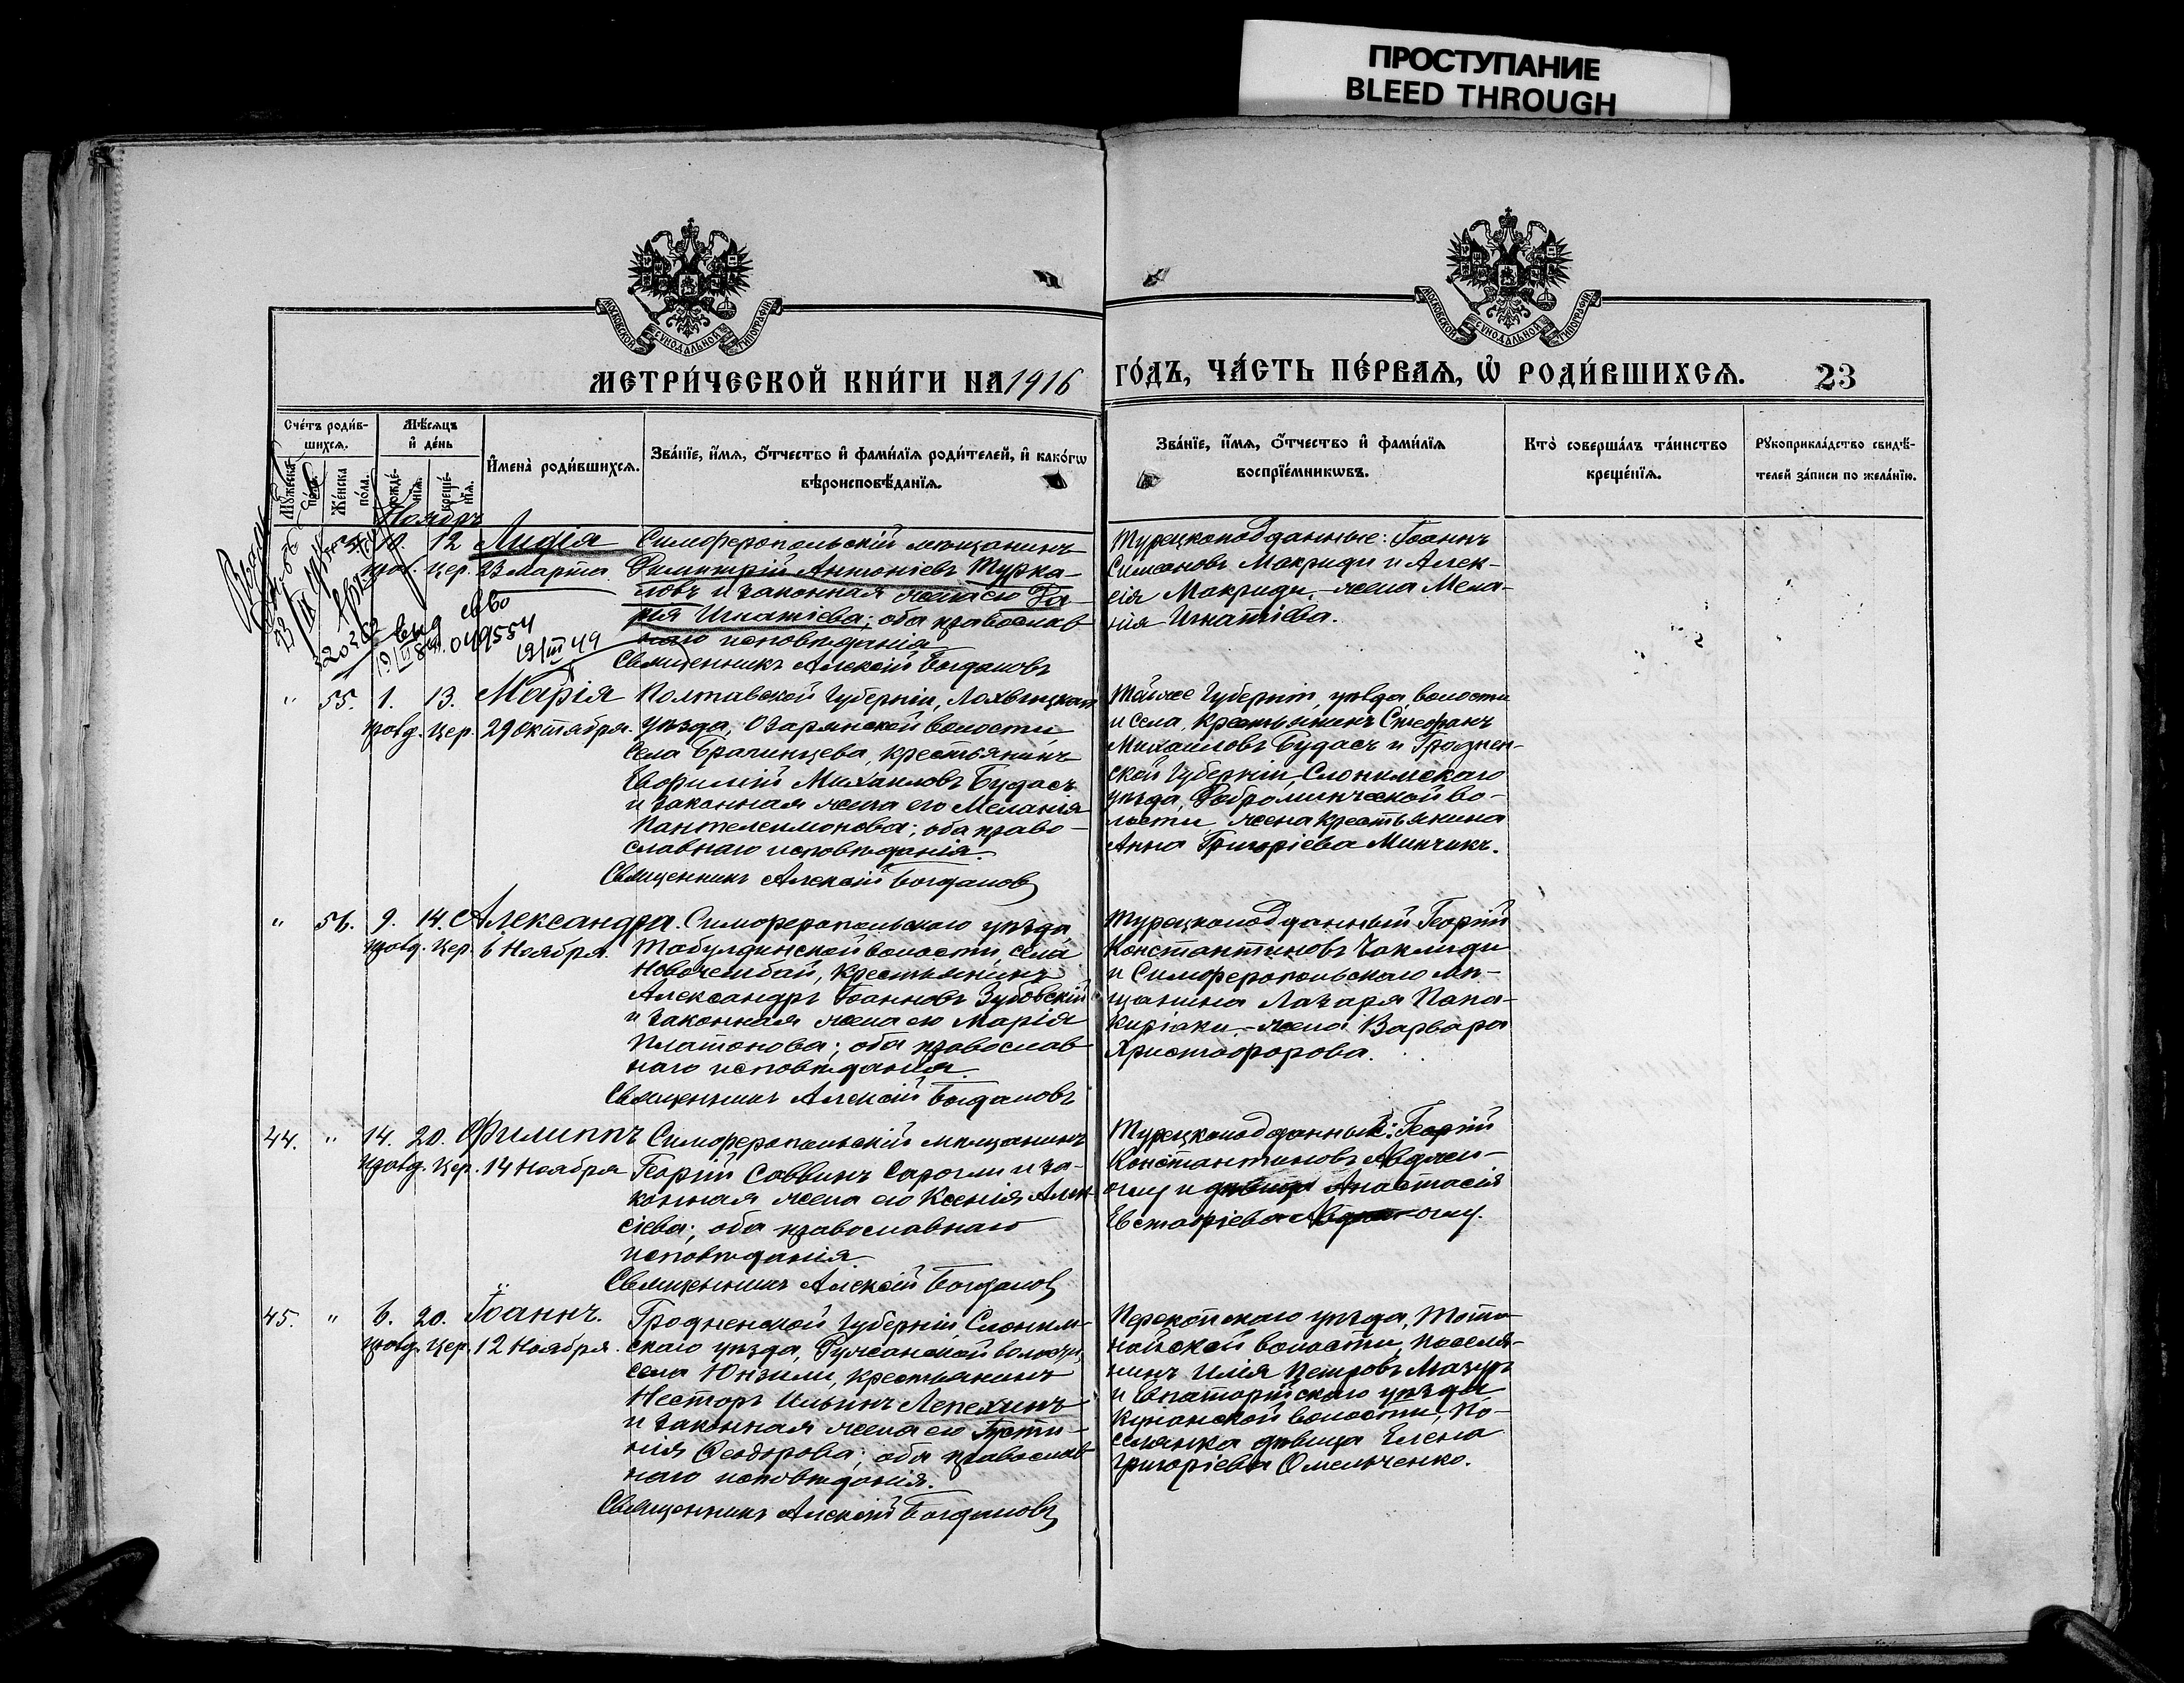 ПРОСТУПАНИЕ
BLEED THROUGH
МОСКОВСКОЙ СѴНОДАЛЬНОЙ ТИПОГРАФІИ
МОСКОВСКОЙ СѴНОДАЛЬНОЙ ТИПОГРАФІИ
МЕТРИ́ЧЕСКОЙ КНИ́ГИ НА 1916
ГО́ДЪ, ЧА́СТЬ ПЕ́РВАѦ, Ѡ҆ РОДИ́ВШИХСѦ. 23
Сче́тъ роди́в-
шихсѧ.
Мꙋ́жеска по́ла.
Же́нска по́ла.
Мѣ́сѧцъ
и҆ де́нь
рожде́-
нїѧ.
креще́-
нїѧ.
И҆мена̀ роди́вшихсѧ.
Зва́нїе, и҆́мѧ, ѻ҆́тчество и҆ фами́лїѧ роди́телей, и҆ како́гѡ
вѣроисповѣ́данїѧ.
Зва́нїе, и҆́мѧ, ѻ҆́тчество и҆ фами́лїѧ
воспрїе́мникѡвъ.
Кто̀ соверша́лъ та́инство
креще́нїѧ.
Рꙋкоприкла́дство свидѣ́-
телей за́писи по жела́нїю.
Ноябрь
10. 12 Лидія
цер. 23 Марта
Симферопольскій мѣщанинъ
Димитрій Антоніевъ Турка-
ловъ и законная жена его Да-
рія Игнатіева; оба православ-
наго исповѣданія
Священникъ Алексій Богдановъ
19/III 49
049554
Турецкоподданные: Іоаннъ
Симеоновъ Макриди и Алек-
сія Макриди, жена Мела-
нія Игнатіева.
" 55. 1. 13. Марія
цер. 29 октября.
Полтавской губерніи, Лохвицкаго
уѣзда, Озарянской волости
села Брагинцева, крестьянинъ
Евфимій Михаиловъ Будасъ
и законная жена его Меланія
Пантелеимонова; оба право-
славнаго исповѣданія.
Священникъ Алексій Богдановъ
Той же губерніи, уѣзда, волости
и села, крестьянинъ Стефанъ
Михаиловъ Будасъ и Гроднен-
ской губерніи, Слонимскаго
уѣзда, Добромысльской во-
лости, жена крестьянина
Анна Григоріева Минчикъ.
" 56. 9. 14. Александра.
цер. 6 Ноября.
Симферопольскаго уѣзда
Табулдинской волости, села
Новочембай, крестьянинъ
Александръ Іоанновъ Зубовскій
и законная жена его Марія
Платонова; оба православ-
наго исповѣданія.
Священникъ Алексій Богдановъ
Турецкоподданный Георгій
Константиновъ Чаклиди
и Симферопольскаго мѣ-
щанина Лазаря Папа-
киріаки, жена Варвара
Христофорова.
44. " 14. 20. Филиппъ
цер. 14 Ноября
Симферопольскій мѣщанинъ
Георгій Саввинъ Сароглы и за-
конная жена его Ксенія Алек-
сіева; оба православнаго
исповѣданія.
Священникъ Алексій Богдановъ
Турецкоподданный: Георгій
Константиновъ
оглу и дѣвица Анастасія
Евстафіева оглу.
45. " 6. 20. Іоаннъ.
цер. 12 Ноября.
Гродненской губерніи, Слоним-
скаго уѣзда, волости,
села крестьянинъ
Несторъ Ильинъ Лепехинъ
и законная жена его Густи-
нія Ѳеодорова; оба православ-
наго исповѣданія.
Священникъ Алексій Богдановъ
Перекопскаго уѣзда,
волости, поселя-
нинъ Илія Петровъ Мазуръ
и Евпаторійскаго уѣзда
волости, по-
селянка дѣвица Елена
Григоріева Омельченко.